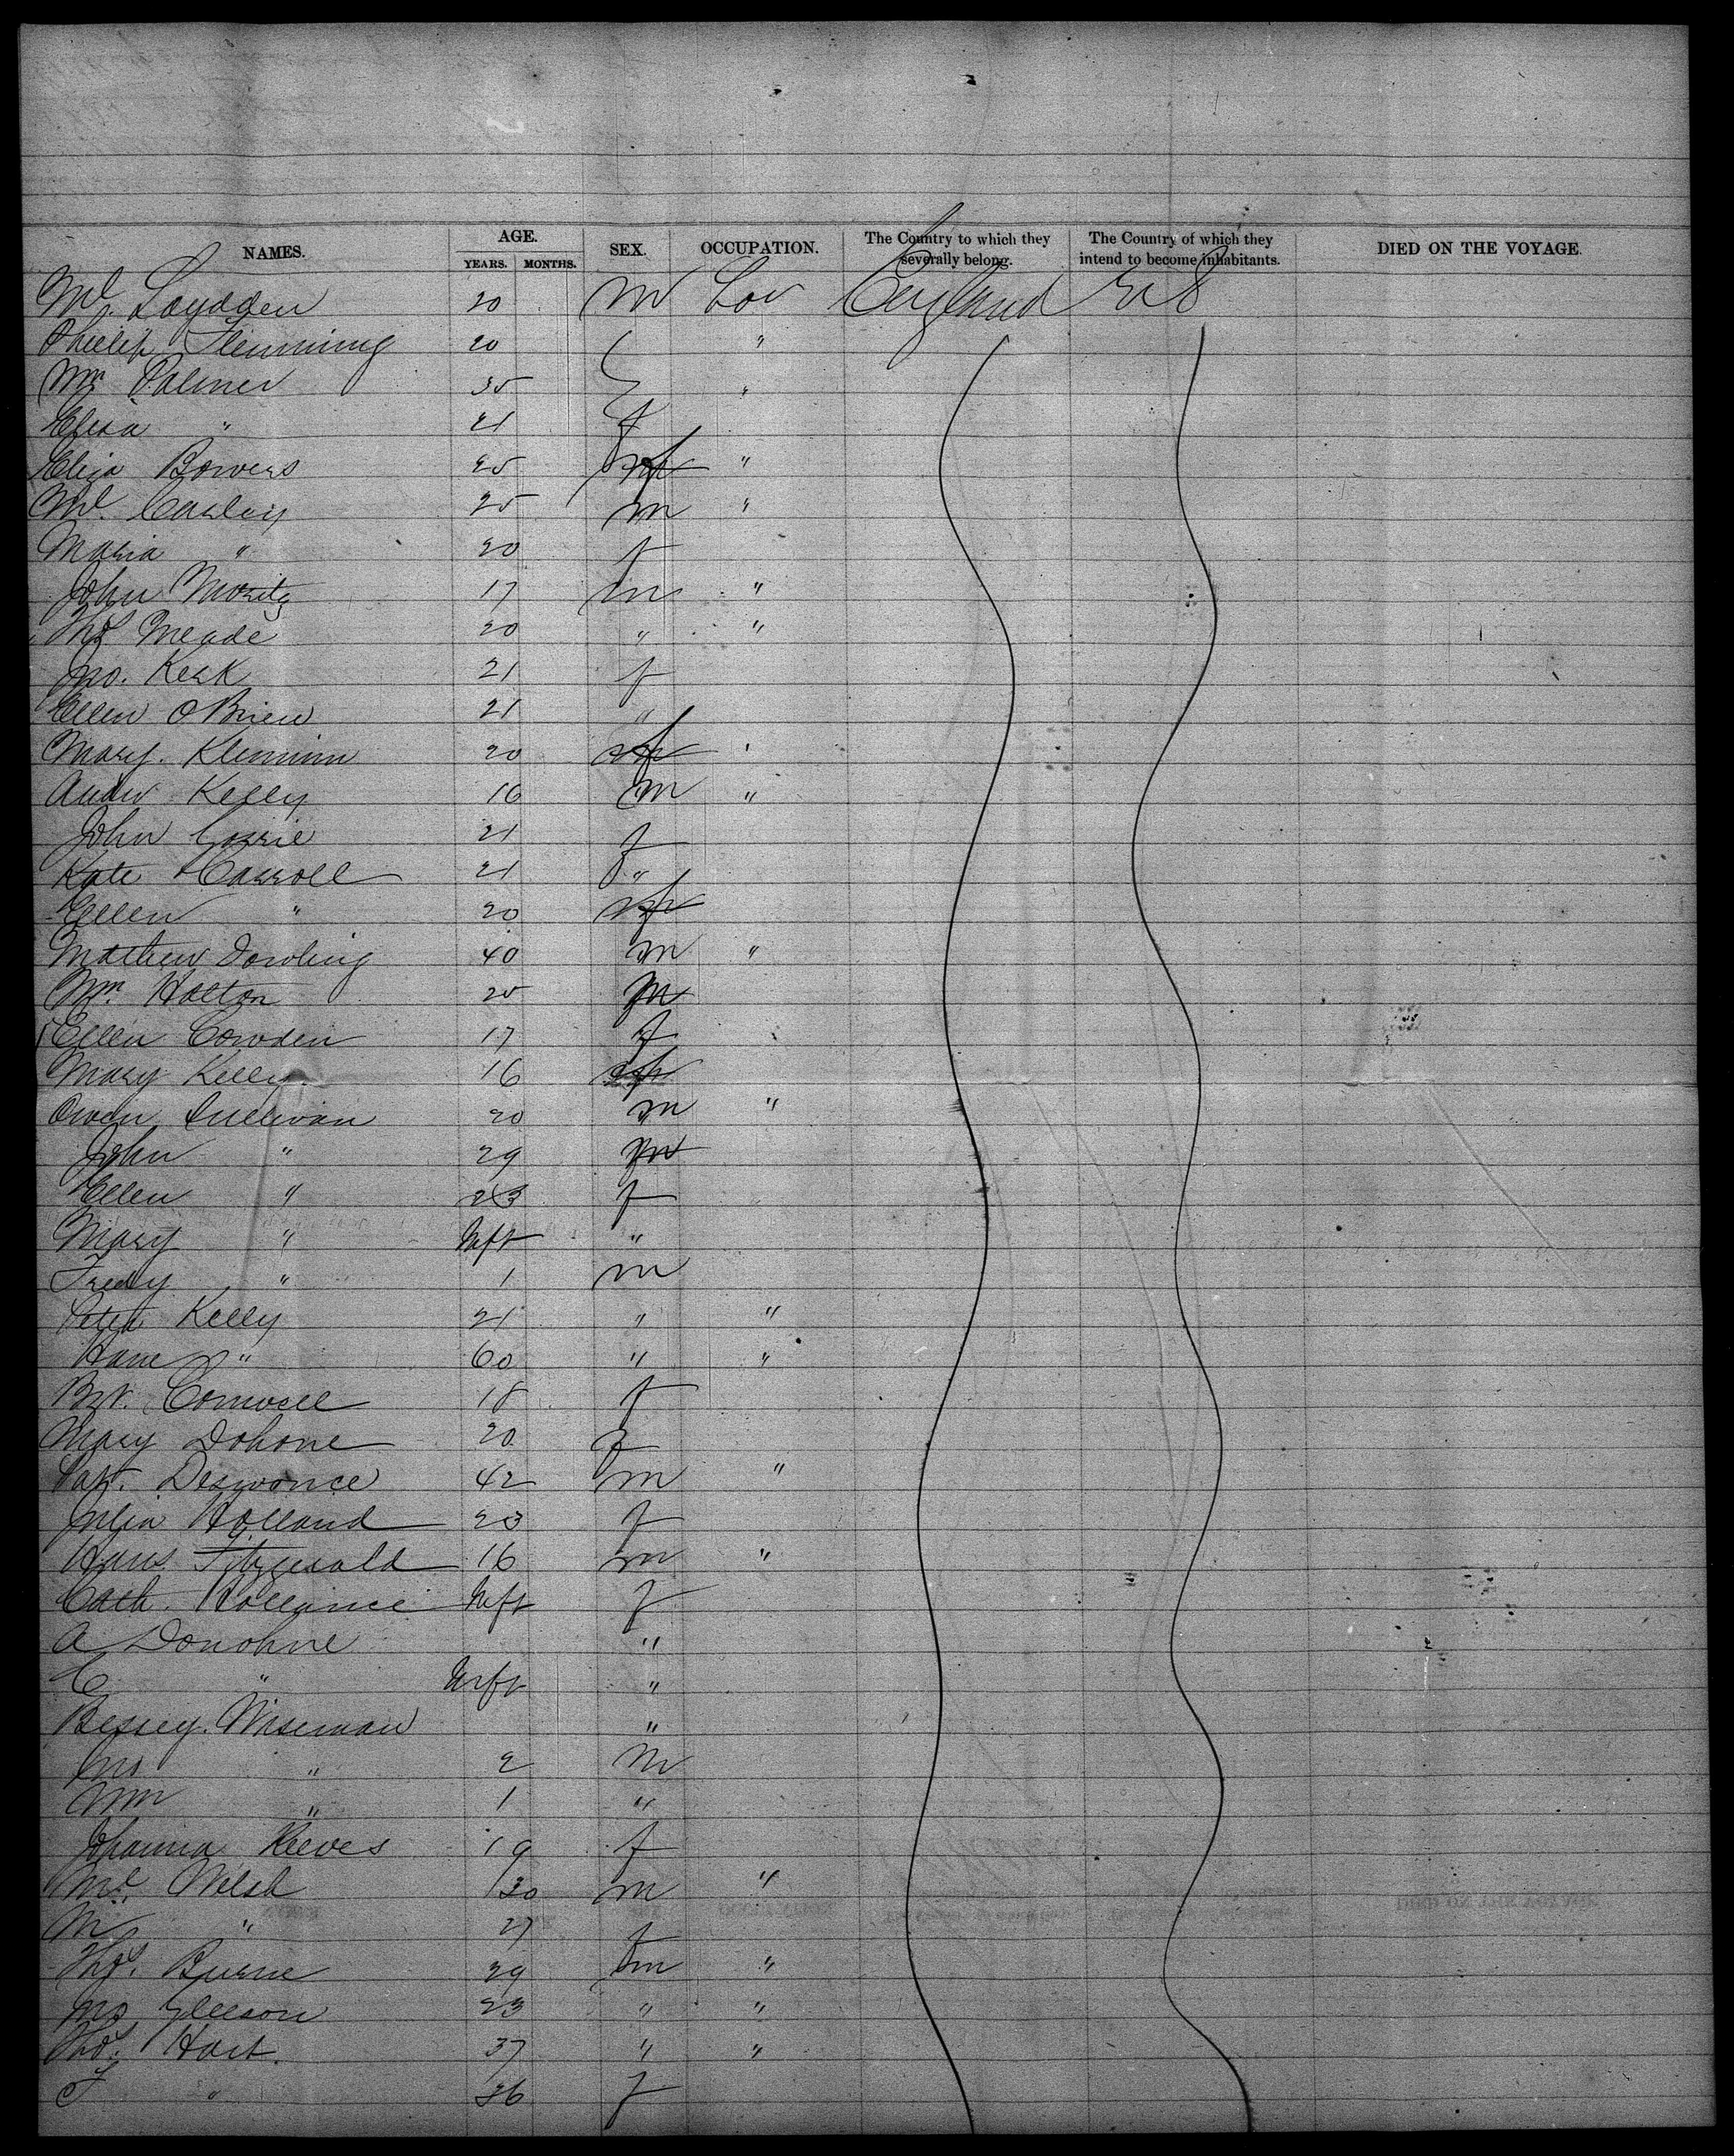 NAMES. AGE. SEX. OCCUPATION. The Country to which they severally belong. The Country of which they intend to become inhabitants. DIED ON THE VOYAGE.
YEARS. MONTHS.
Ml. Loydden 20 M Lab England US
Phillip Flemming 20 "
Wm Palmer 35 "
Eliza " 21 f
Eliza Bowers 25 f "
Ml. Carley 25 m "
Maria " 20 f
John Moritz 17 m "
Thos Meade 20 " "
Jno. Kerk 21 f
Ellen OBrien 21 "
Mary. Kleminn 20 f "
Andw Kelly 16 m "
John Corrie 21 f
Kate Carroll 21 "
Ellen " 20 f
Mathew Dowling 40 m "
Wm. Holton 25 m
Ellen Cowden 17 f
Mary Kelly 16 f
Owen Sullivan 20 m "
John " 29 m
Ellen " 23 f
Mary " Inft "
Fredy " 1 m
Peter Kelly 21 " "
" 60 " "
Bt. Cornwell 18 f
Mary Dohone 20 f
Pat. 42 m "
Julia Holland 23 f
Hans Fitzgerald 16 m "
Cath. Inft f
A Donohue "
C " Inft "
Bessey. Wiseman "
Jno " 2 M
Wm " 1 "
Johanna Reeves 19 f
Ml. Welsh 30 m "
M " 27 f
Thos. Burne 29 m "
Jno Gleeson 23 " "
Thos. Hart. 37 " "
" 36 f